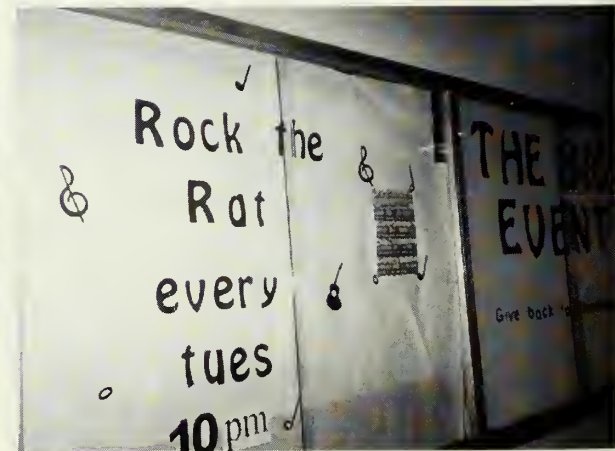 Rock the
Rat
every
tues
10 pm
THE
EVENT
Give back